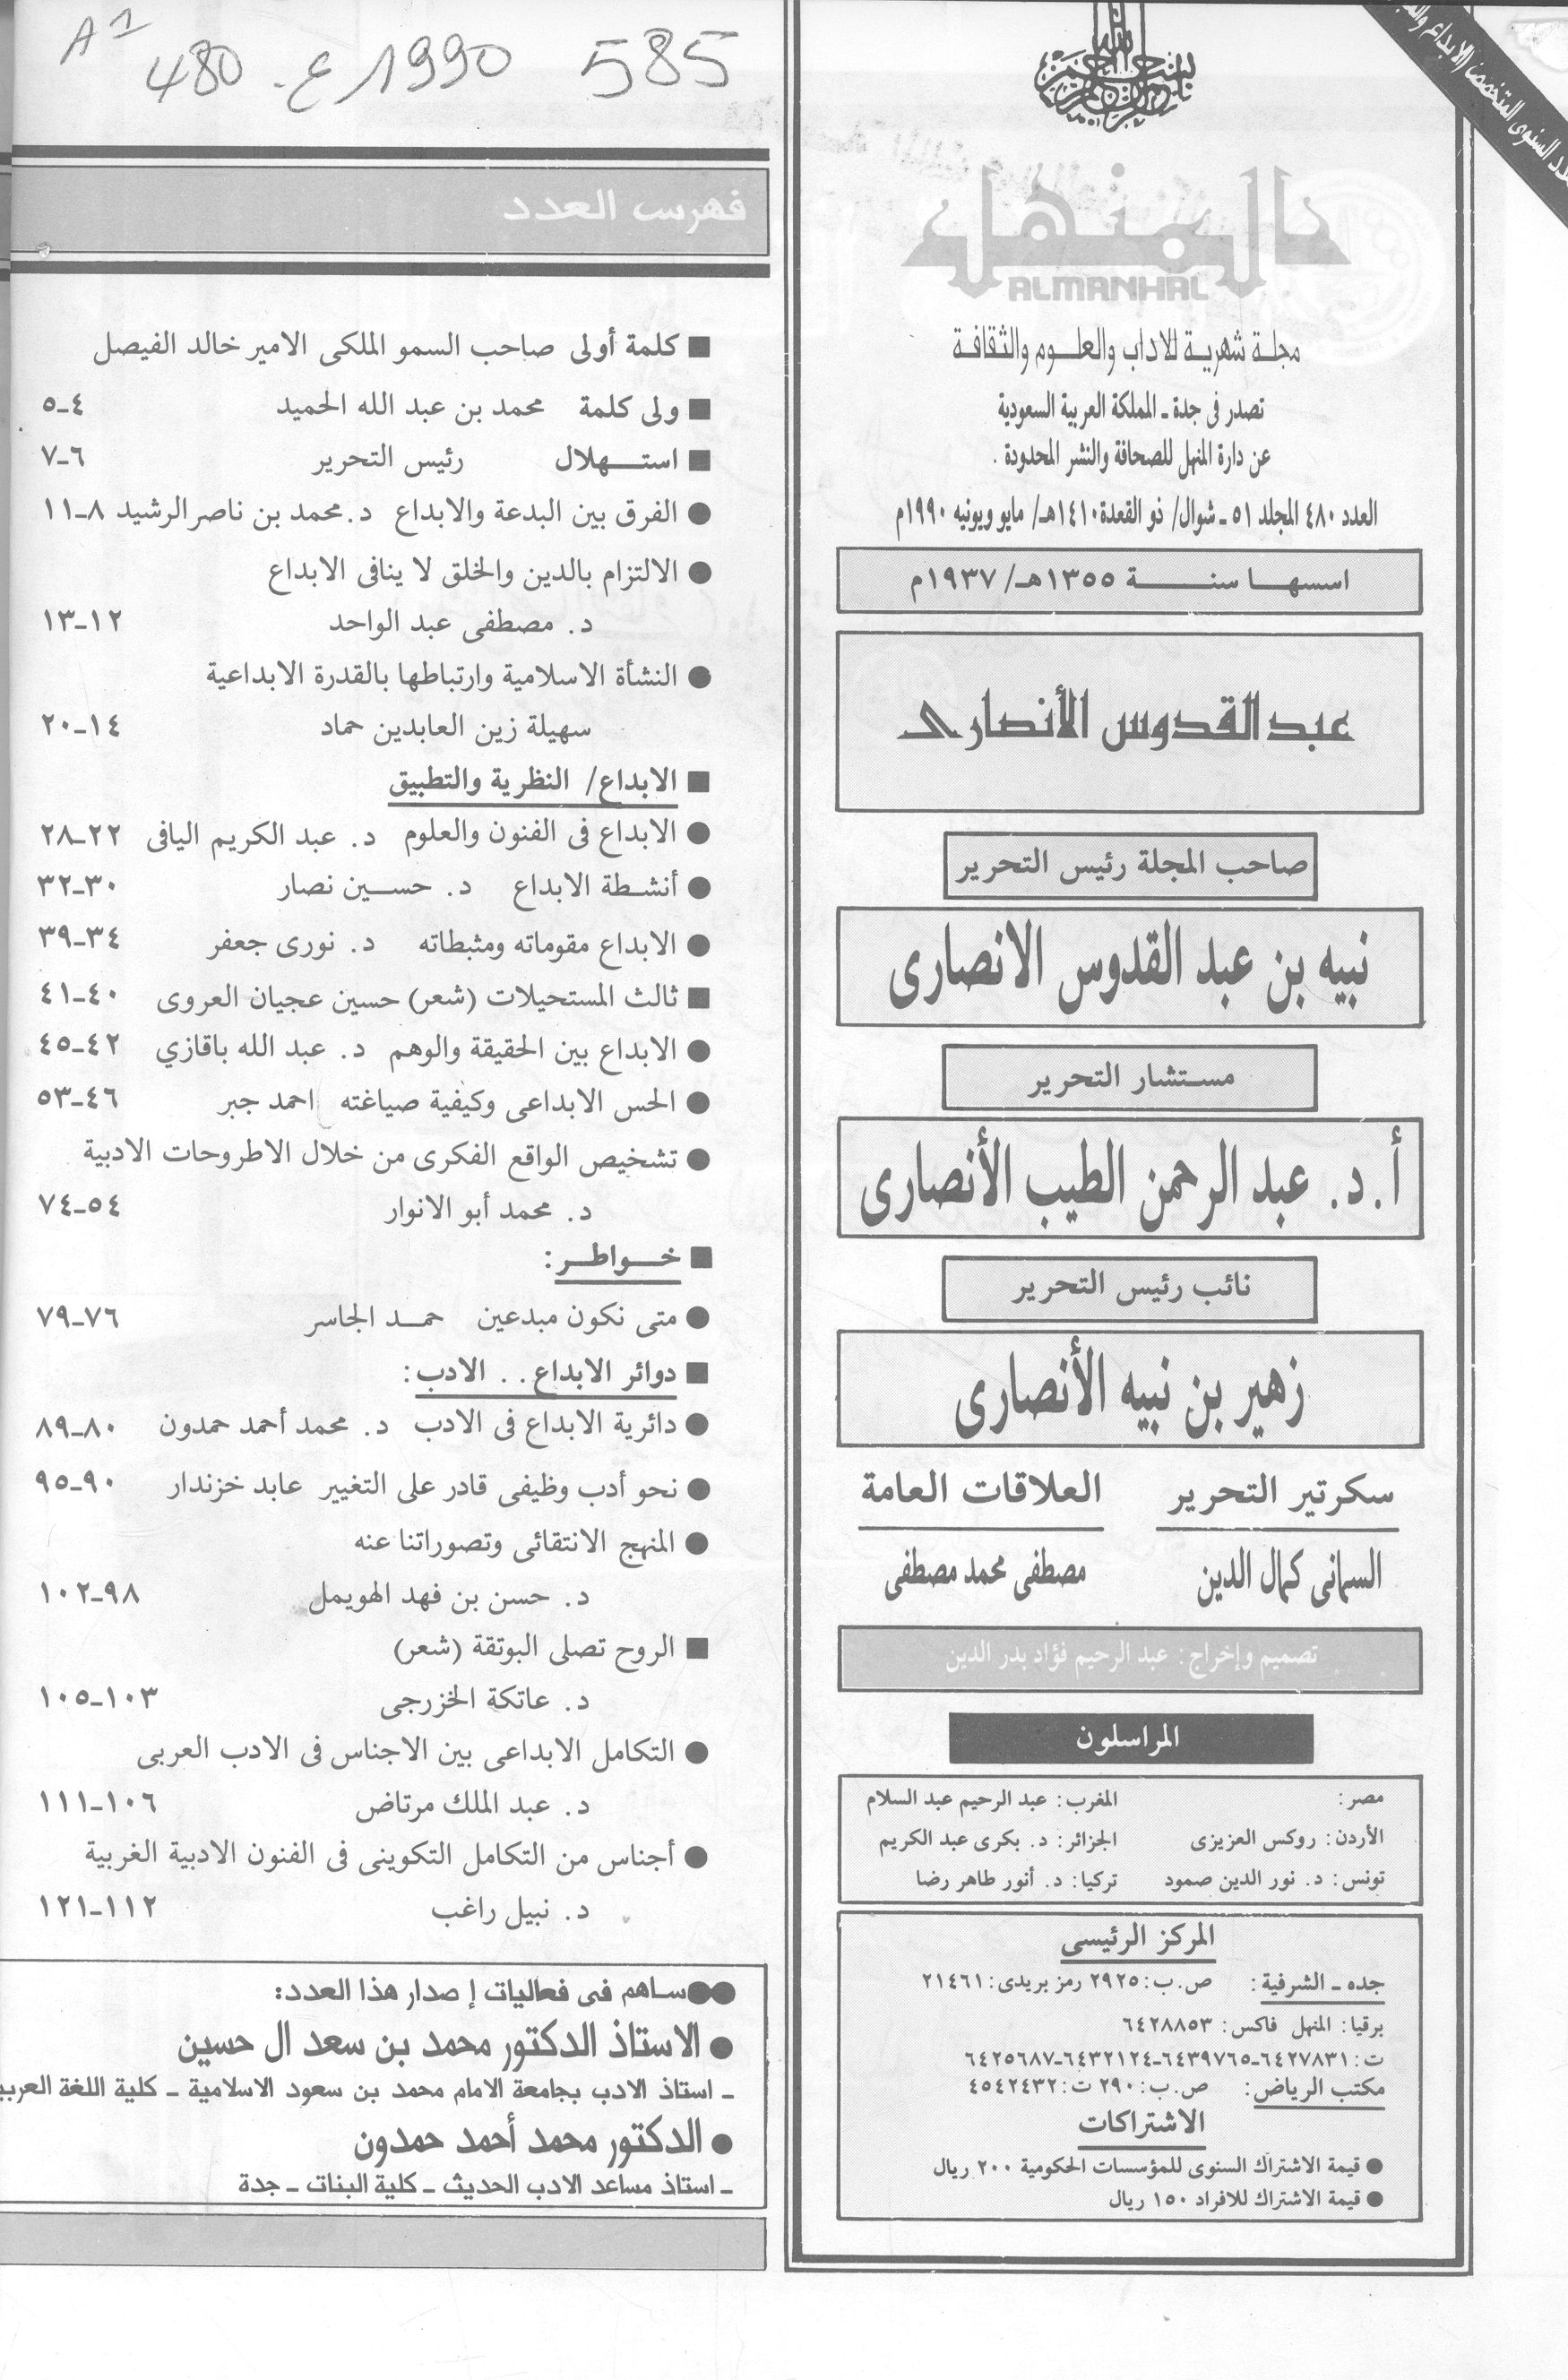 A1
480 ع 1990 585
بسم الله الرحمن الرحيم
المنهل
ALMANHAL
مجلة شهرية للاداب والعلوم والثقافة
تصدر فى جدة ـ المملكة العربية السعودية
عن دارة المنهل للصحافة والنشر المحدودة .
العدد ٤٨٠ المجلد ٥١ ـ شوال/ ذو القعدة ١٤١٠هـ/ مايو ويونيه ١٩٩٠م
اسسها سنة ١٣٥٥هـ/ ١٩٣٧م
عبد القدوس الأنصارى
صاحب المجلة رئيس التحرير
نبيه بن عبد القدوس الانصارى
مستشار التحرير
أ. د. عبد الرحمن الطيب الأنصارى
نائب رئيس التحرير
زهير بن نبيه الأنصارى
سكرتير التحرير العلاقات العامة
السمانى كمال الدين مصطفى محمد مصطفى
تصميم وإخراج : عبد الرحيم فؤاد بدر الدين
المراسلون
مصر : المغرب : عبد الرحيم عبد السلام
الأردن : روكس العزيزى الجزائر : د. بكرى عبد الكريم
تونس : د. نور الدين صمود تركيا : د. أنور طاهر رضا
المركز الرئيسى
جده ـ الشرفية : ص.ب : ٢٩٢٥ رمز بريدى : ٢١٤٦١
برقيا : المنهل فاكس : ٦٤٢٨٨٥٣
ت : ٦٤٢٧٨٣١-٦٤٣٩٧٦٥-٦٤٣٢١٢٤-٦٤٢٥٦٨٧
مكتب الرياض : ص.ب : ٢٩٠ ت : ٤٥٤٢٤٣٢
الاشتراكات
● قيمة الاشتراك السنوى للمؤسسات الحكومية ٢٠٠ ريال
● قيمة الاشتراك للافراد ١٥٠ ريال
فهرس العدد
■ كلمة أولى صاحب السمو الملكى الامير خالد الفيصل
■ ولى كلمة محمد بن عبد الله الحميد ٤-٥
■ استهلال رئيس التحرير ٦-٧
● الفرق بين البدعة والابداع د. محمد بن ناصر الرشيد ٨-١١
● الالتزام بالدين والخلق لا ينافى الابداع
د. مصطفى عبد الواحد ١٢-١٣
● النشأة الاسلامية وارتباطها بالقدرة الابداعية
سهيلة زين العابدين حماد ١٤-٢٠
■ الابداع/ النظرية والتطبيق
● الابداع فى الفنون والعلوم د. عبد الكريم اليافى ٢٢-٢٨
● أنشطة الابداع د. حسين نصار ٣٠-٣٢
● الابداع مقوماته ومثبطاته د. نورى جعفر ٣٤-٣٩
■ ثالث المستحيلات (شعر) حسين عجيان العروى ٤٠-٤١
● الابداع بين الحقيقة والوهم د. عبد الله باقازي ٤٢-٤٥
● الحس الابداعى وكيفية صياغته احمد جبر ٤٦-٥٣
● تشخيص الواقع الفكرى من خلال الاطروحات الادبية
د. محمد أبو الانوار ٥٤-٧٤
■ خواطر :
● متى نكون مبدعين حمد الجاسر ٧٦-٧٩
■ دوائر الابداع . . الادب :
● دائرية الابداع فى الادب د. محمد أحمد حمدون ٨٠-٨٩
● نحو أدب وظيفى قادر على التغيير عابد خزندار ٩٠-٩٥
● المنهج الانتقائى وتصوراتنا عنه
د. حسن بن فهد الهويمل ٩٨-١٠٢
■ الروح تصلى البوتقة (شعر)
د. عاتكة الخزرجى ١٠٣-١٠٥
● التكامل الابداعى بين الاجناس فى الادب العربى
د. عبد الملك مرتاض ١٠٦-١١١
● أجناس من التكامل التكوينى فى الفنون الادبية الغربية
د. نبيل راغب ١١٢-١٢١
●● ساهم فى فعاليات إصدار هذا العدد :
● الاستاذ الدكتور محمد بن سعد ال حسين
ـ استاذ الادب بجامعة الامام محمد بن سعود الاسلامية ـ كلية اللغة العربي
● الدكتور محمد أحمد حمدون
ـ استاذ مساعد الادب الحديث ـ كلية البنات ـ جدة